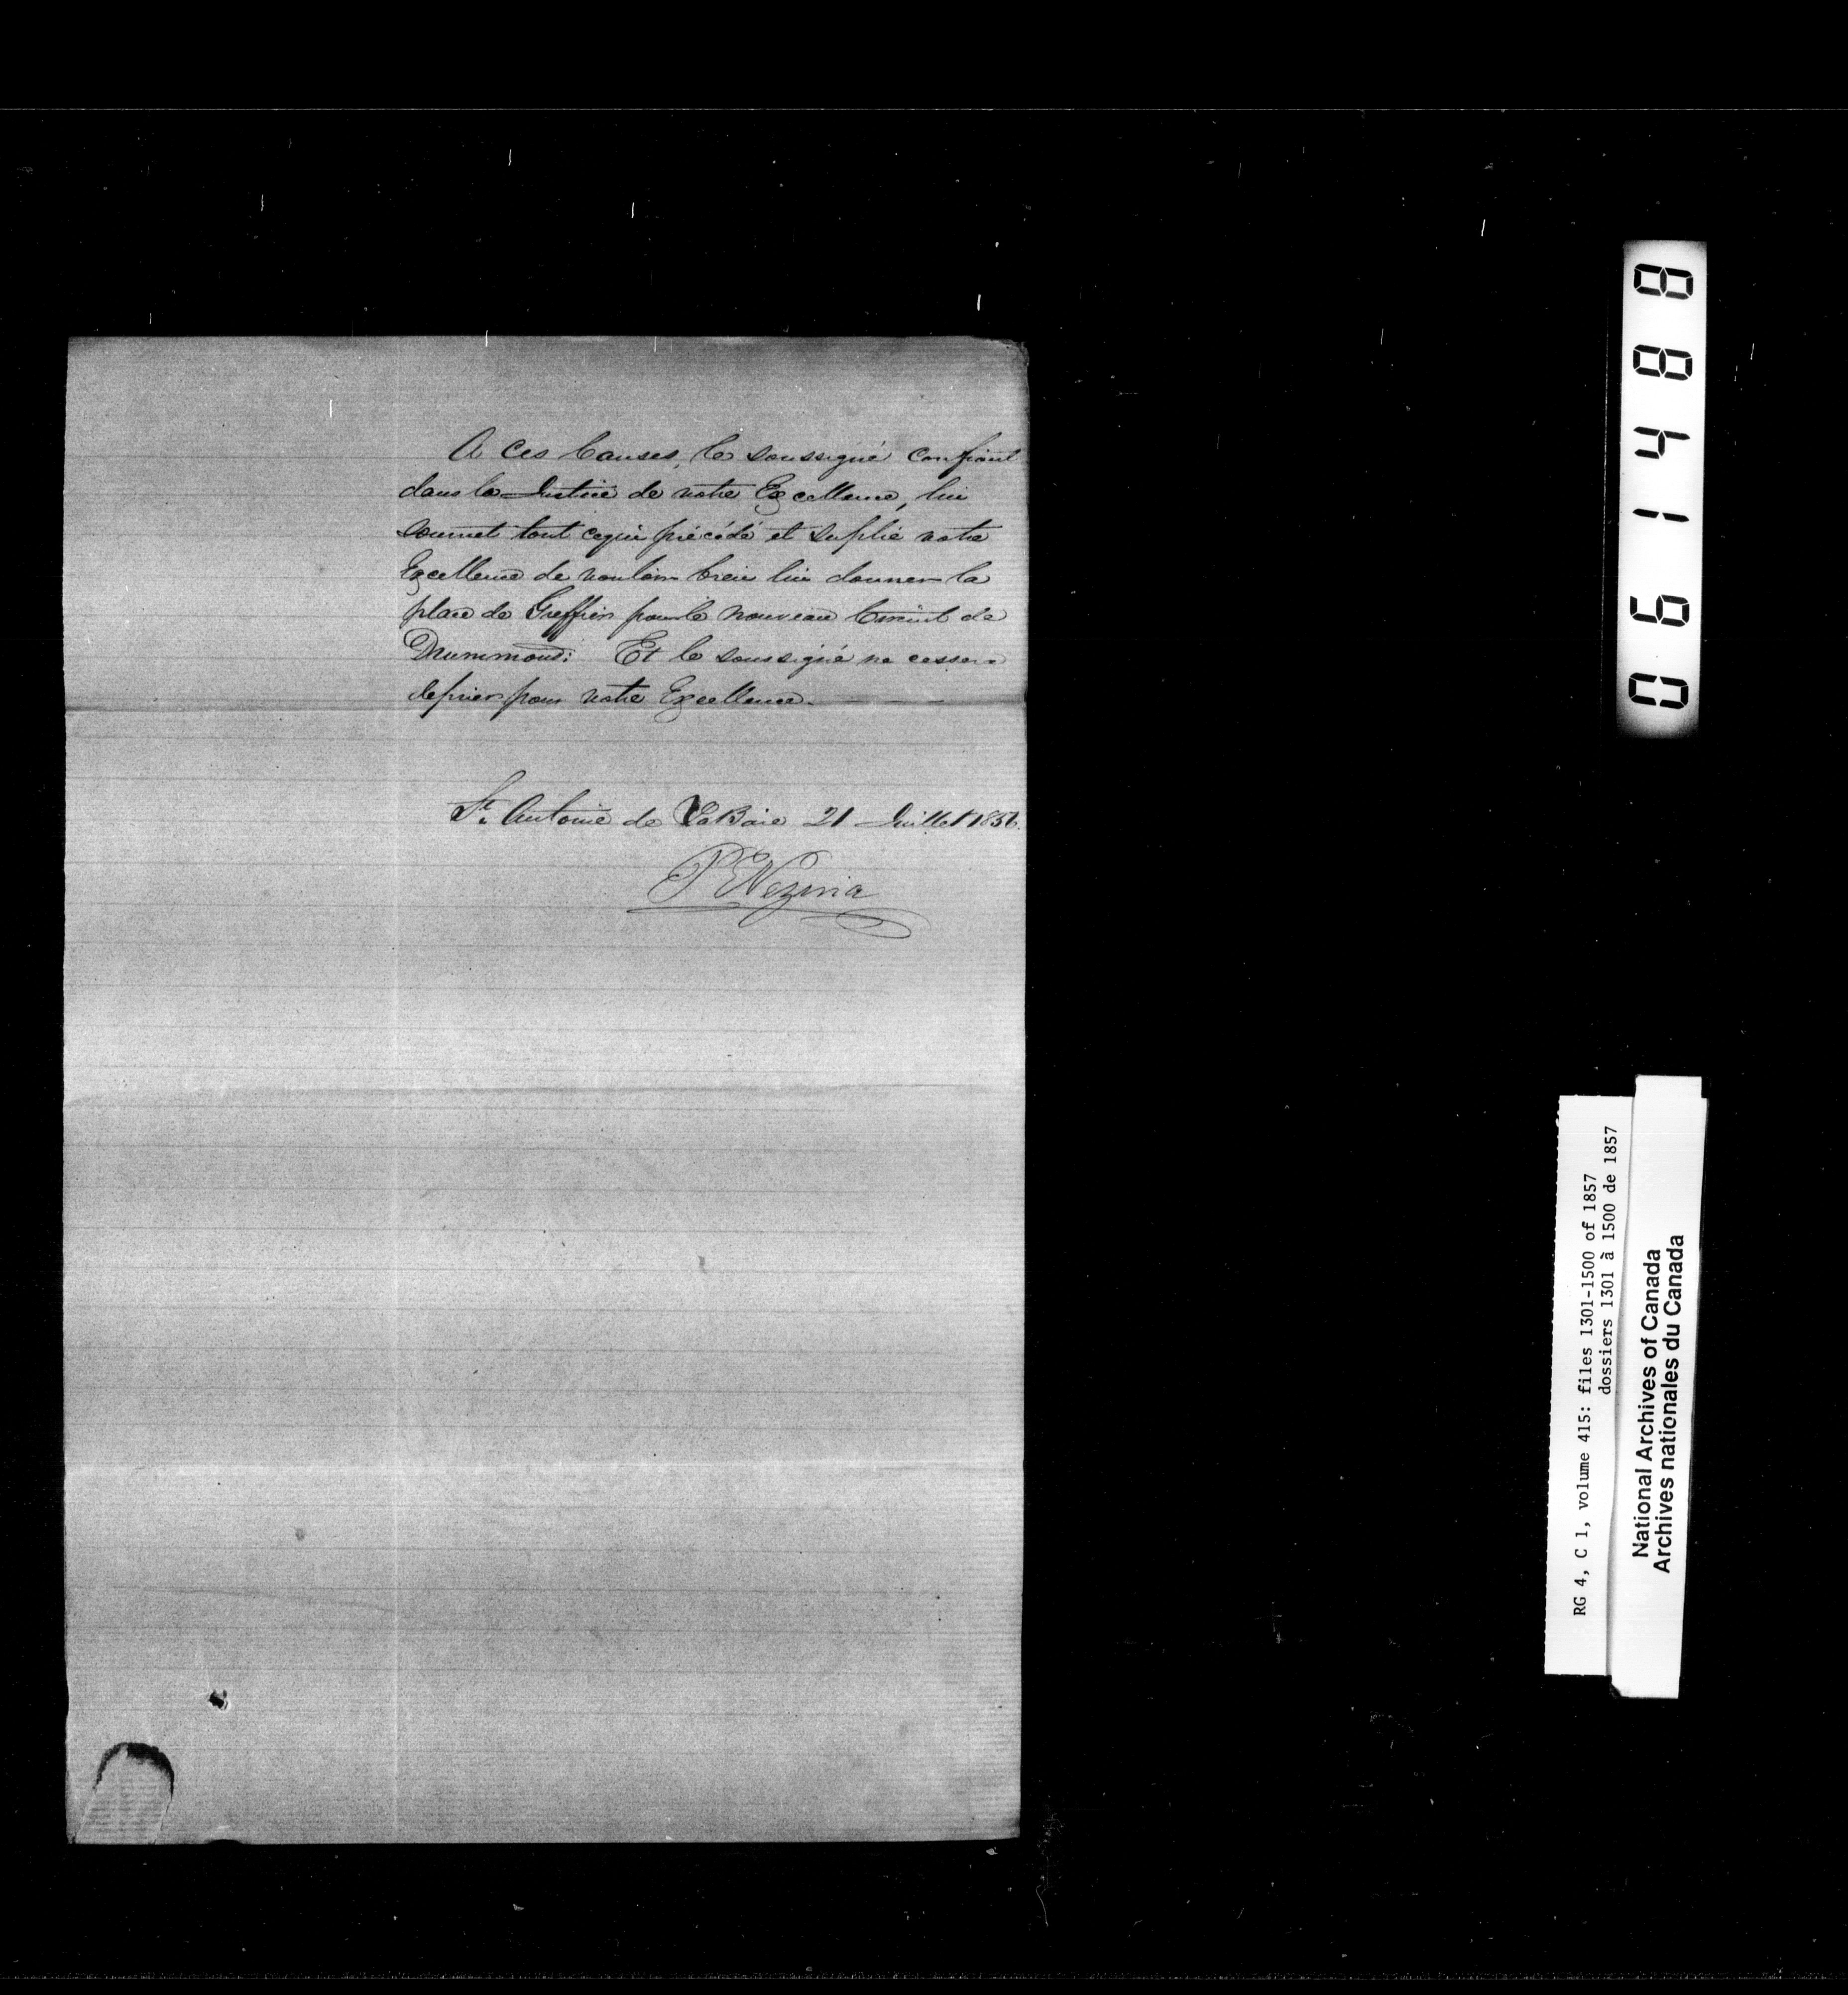 A Ces Causes, le soussigné confiant
dans la Justice de votre Excellence, lui
soumet tout cequi précédé et suplie votre
Excellence de vouloir bien lui donner la
place de Greffier pour le nouveau Circuit de
Drummond: Et le soussigné ne cessera
de prier pour votre Excellence.
St. Antoine de LaBaie 21 Juillet 1856.
P E Vezina
061488
RG 4, C 1, volume 415: files 1301-1500 of 1857
dossiers 1301 à 1500 de 1857
National Archives of Canada
Archives nationales du Canada